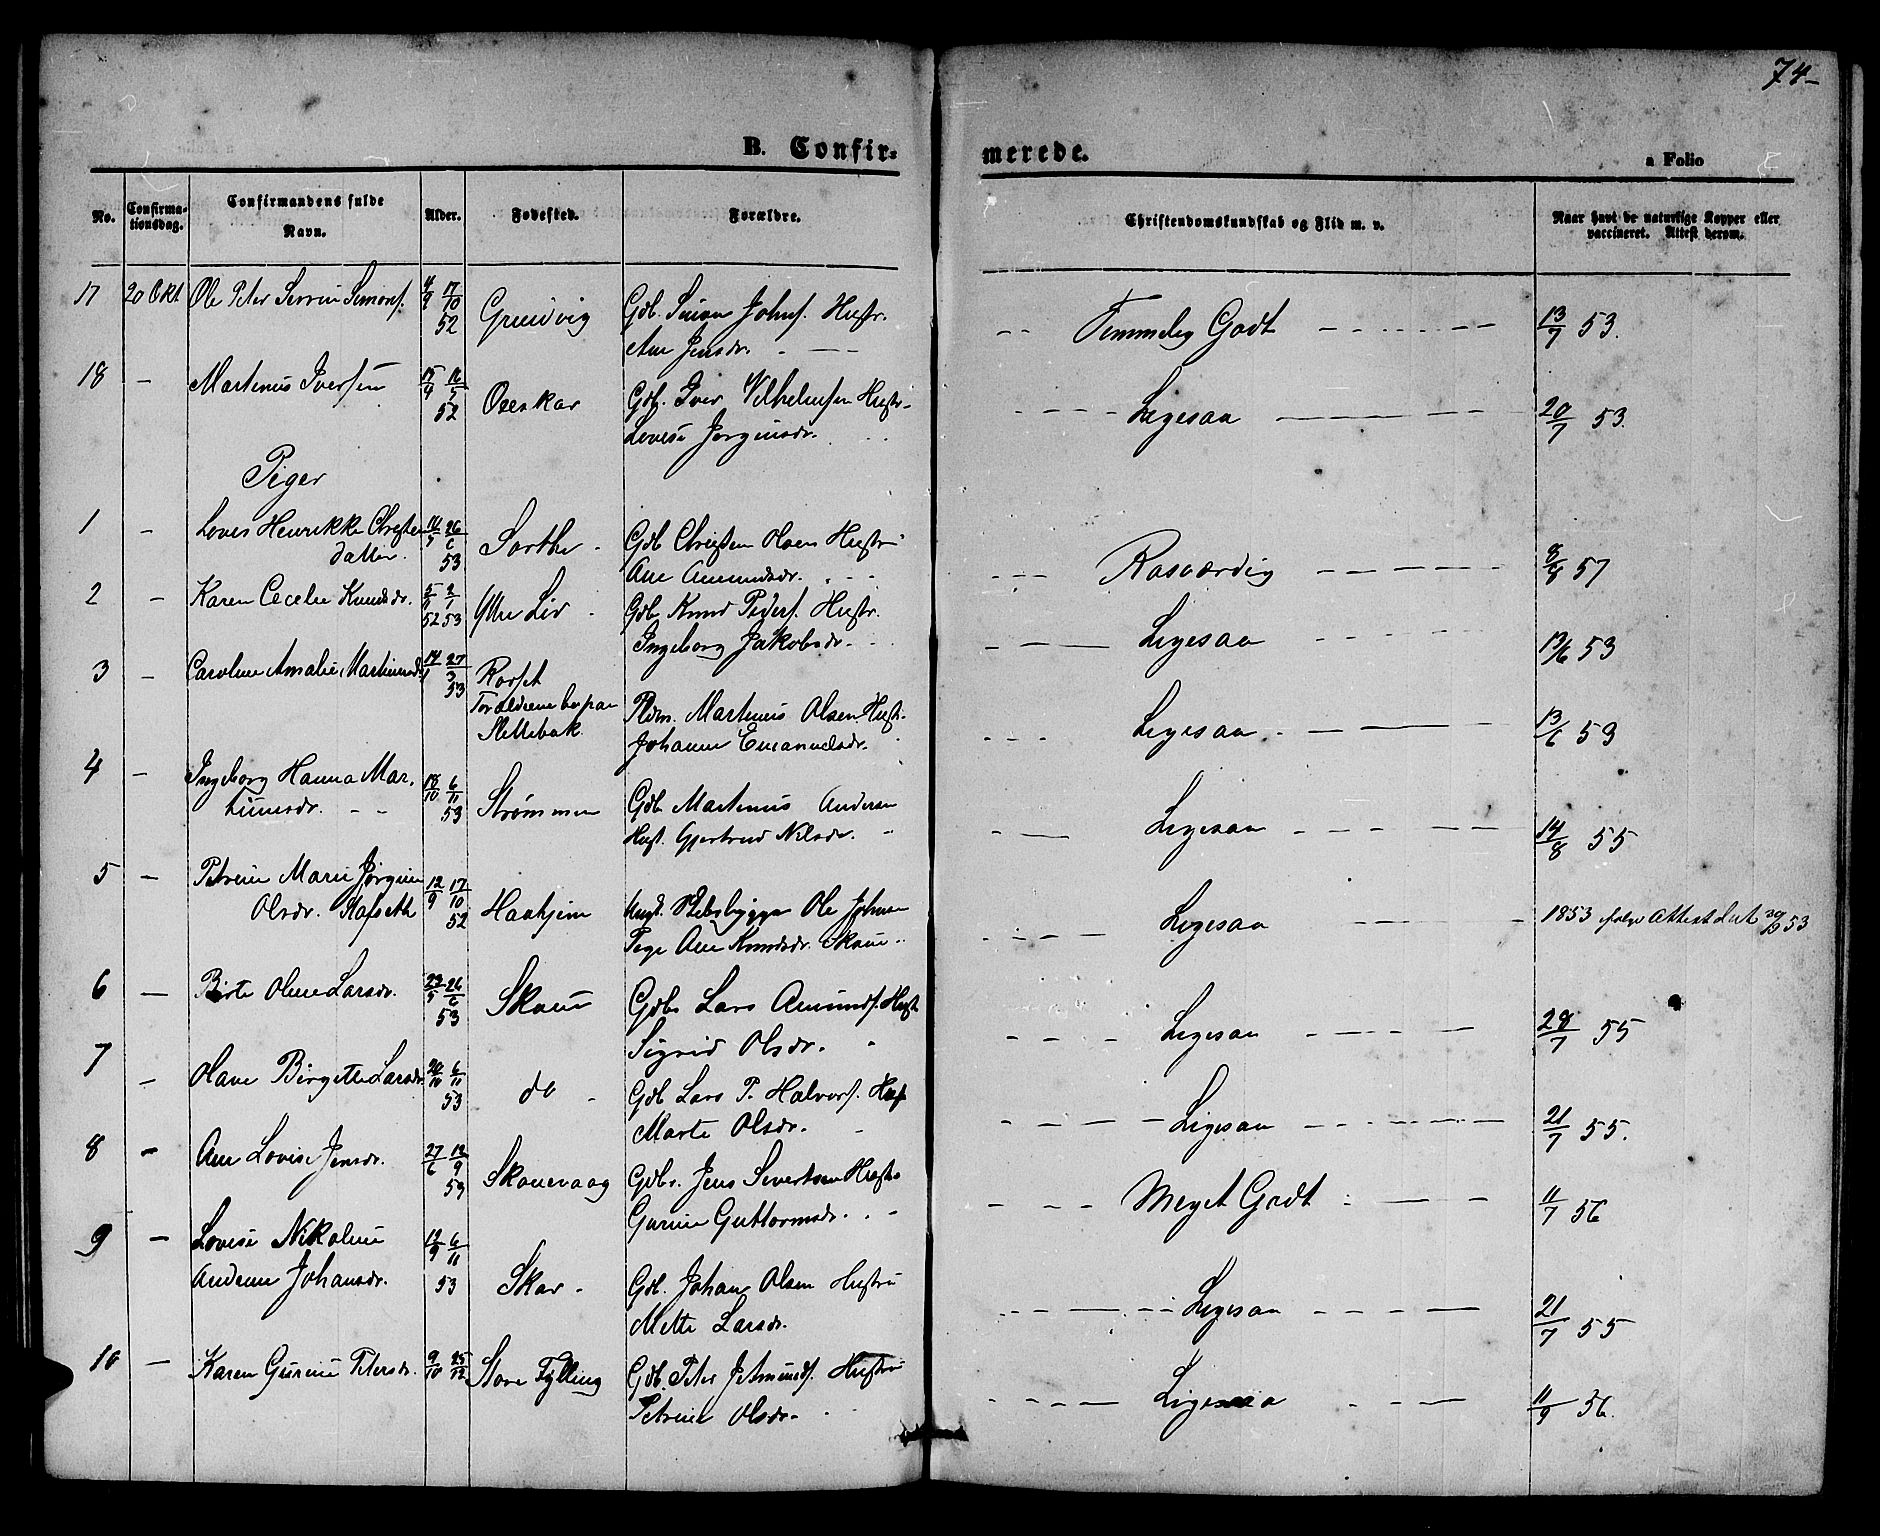 74-
B. Confir-
merede.
a Folio
No.
Confirma-
tionsdag.
Confirmandens fulde
Navn.
Alder.
Fødested.
Forældre.
Christendomskundskab og Flid m. v.
Naar havt de naturlige Kopper eller
vaccineret. Attest derom.
17 20 Okt Ole Peter Simons. 4/9 17/10 52 Grundvig Gdb. Simon Johns. Hustr.
Ane Jensdr.
Temmelig Godt 13/7 53.
18 - Martinus Iversen 16/9 52 Gdb. Iver Vilhelmsen Hustr.
Lovise Jørgensdr.
Ligesaa 20/7 53.
Piger
1 - Lovise Henrikke Christen
datter. 26/6 53 Sorthe Gdb. Christen Olsen Hustr
Ane Amundsdr.
Rosværdig 8/8 57
2 - Karen Cecelie Knudsdr. 52 2/1 53 Ytre Liv Gdb Knud Peders. Hustr.
Ingeborg Jakobsdr.
Ligesaa 53
3 - Caroline Amalie Martinusd. 14/1 27/3 53 Rorset
Forældrene bor paa
Slettebak.
Pldm. Martinus Olsen Hustr.
Johanne Emanuelsdr.
Ligesaa 13/6 53
4 - Ingeborg Hanna Mar-
tinusdr. 18/10 6/11 53 Strømmen Gdb Martinus Andersen
Hust. Gjertrud Nilsdr.
Ligesaa 14/8 55
5 - Petrine Marie Jørgine
Olsdr. Hafseth 12/9 17/10 52 Haahjem Ole Johnsen
Pige Ane Knudsdr. Skoue
Ligesaa 1853 følge Attest 53
6 - Birte Oline Larsdr. 23/5 26/6 53 Skoue Gdb Lars Amunds. Hust
Sigrid Olsdr.
Ligesaa 28/7 55
7 - Olave Birgette Larsdr 20/10 6/11 53 do Gdb Lars P. Halvors. Hust
Marte Olsdr.
Ligesaa 21/7 55.
8 - Ane Lovise Jensdr. 27/6 53 Skouevaag Gdbr. Jens Sivertsen Hustr
Gurine Guttormsdr.
Meget Godt 11/7 56
9 - Lovise Nikoline
Andrine Johansdr. 12/9 6/11 53 Skar Gdb. Johan Olsen Hustru
Mette Larsdr.
Ligesaa 21/7 55
10 - Karen Gurine Petersdr. 9/10 25/12 Store Fylling Gdb. Peter J. Amunds. Hustru
Petrine Olsdr.
Ligesaa 11/9 56.